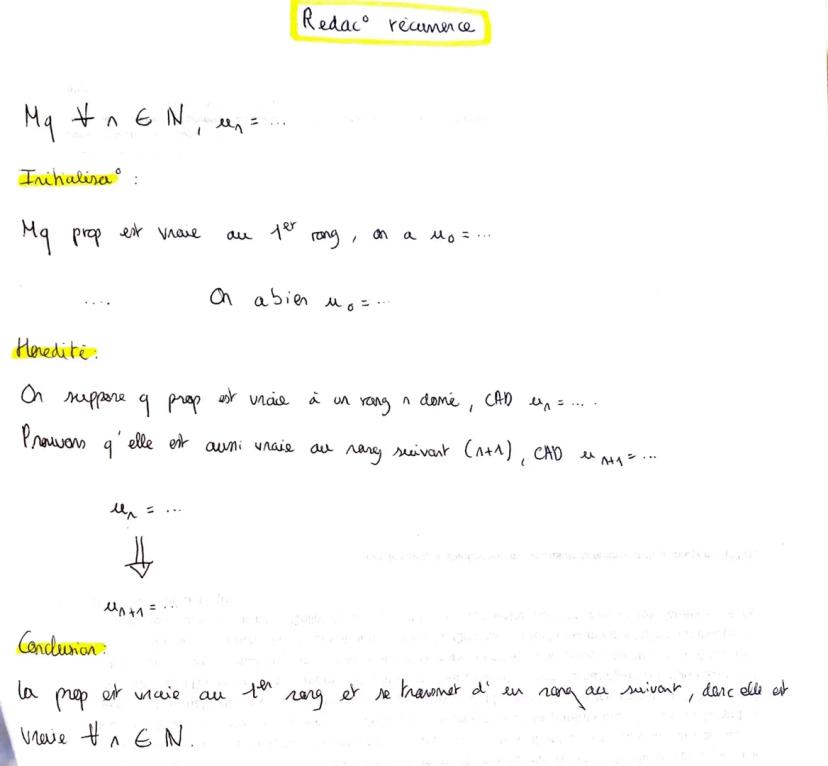 Redac° récurrence
Mq ∀ n ∈ ℕ, uₙ = ...
Initialisa° :
Mq prop est vraie au 1er rang, on a u₀ = ...
.... On a bien u₀ = ...
Heredité :
On suppose q prop est vraie à un rang n donné, CAD uₙ = ....
Prouvons q'elle est aussi vraie au rang suivant (n+1), CAD uₙ₊₁ = ...
uₙ = ...
⇓
uₙ₊₁ = ...
Conclusion :
La prop est vraie au 1er rang et se transmet d'un rang au suivant, donc elle est
vraie ∀ n ∈ ℕ.